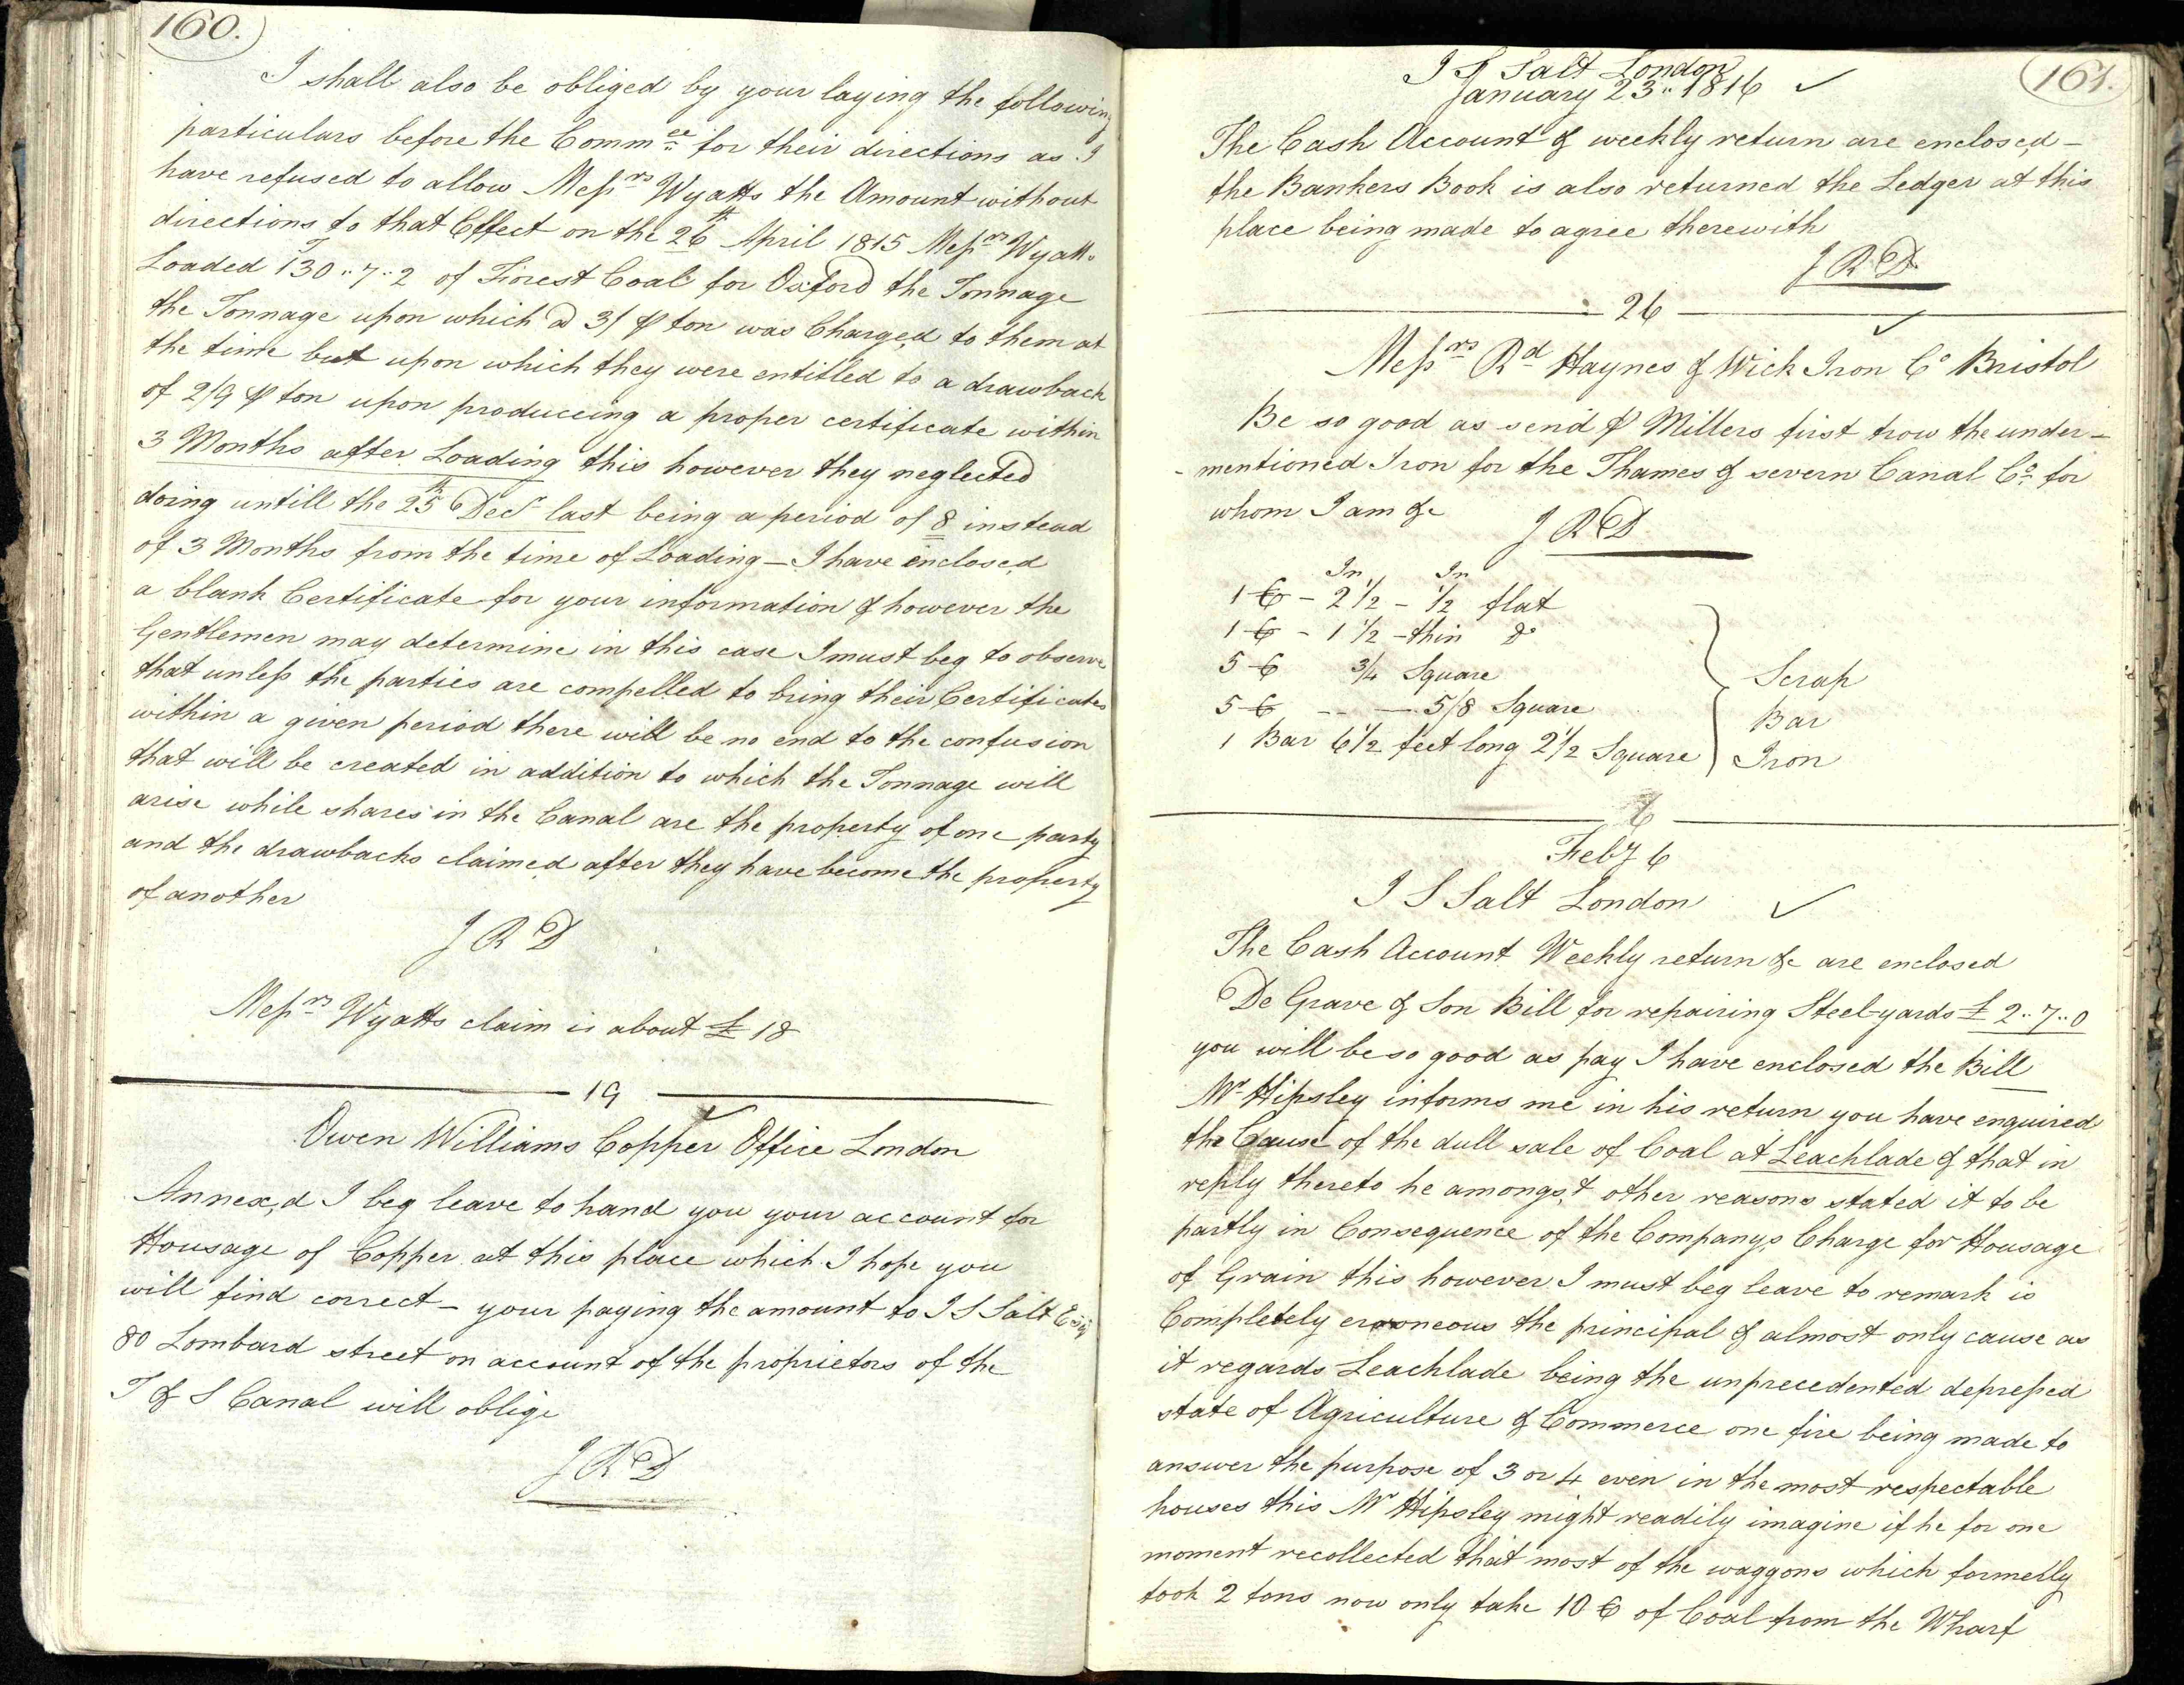 160.
I shall also be obliged by your laying the following
particulars before the Comm.ee for their directions as I
have refused to allow Messrs Wyatts the Amount without
directions to that Effect on the 26th April 1815 Messrs Wyatts
Loaded 130..7..2 of Forest Coal for Oxford the Tonnage
the Tonnage upon which @ 3/ ⅌ ton was Charged to them at
the time but upon which they were entitled to a drawback
of 2/9 ⅌ ton upon produceing a proper certificate within
3 Months after Loading this however they neglected
doing untill the 25th Decr last being a period of 8 instead
of 3 Months from the time of Loading – I have enclosed
a blank Certificate for your information & however the
Gentlemen may determine in this case I must beg to observe
that unless the parties are compelled to bring their Certificates
within a given period there will be no end to the confusion
that will be created in addition to which the Tonnage will
arise while shares in the Canal are the property of one party
and the drawbacks claimed after they have become the property
of another
J R D
Messrs Wyatts claim is about £18
19
Owen Williams Copper Office London
Annex,d I beg leave to hand you your account for
Housage of Copper at this place which I hope you
will find correct – your paying the amount to I S Salt Esq
80 Lombard street on account of the proprietors of the
T & S Canal will oblige
J R D
161.
I S Salt London
January 23.. 1816 ✓
The Cash Account & weekly return are enclosed –
the Bankers Book is also returned the Ledger at this
place being made to agree therewith
J R D
26
✓
Messrs Rd Haynes & Wick Iron Co Bristol
Be so good as send ⅌ Millers first trow the under –
- mentioned Iron for the Thames & severn Canal Co. for
whom I am &c
J R D
In In
1 C – 2 1/2 – 1/2 flat
1 C – 1 1/2 – thin do
5 C 3/4 Square
5 C -- — 5/8 Square
1 Bar 6 1/2 feet long 2 1/2 Square
Scrap
Bar
Iron
Feby 6
I S Salt London ✓
The Cash Account Weekly return &c are enclosed
De Grave & Son Bill for repairing Steel-yards £2..7..0
you will be so good as pay I have enclosed the Bill
Mr Hipsley informs me in his return you have enquired
the Cause of the dull sale of Coal at Leachlade & that in
reply thereto he amongs,t other reasons stated it to be
partly in Consequence of the Company,s Charge for Housage
of Grain this however I must beg leave to remark is
Completely erroneous the principal & almost only cause as
it regards Leachlade being the unprecedented depressed
state of Agriculture & Commerce one fire being made to
answer the purpose of 3 or 4 even in the most respectable
houses this Mr Hipsley might readily imagine if he for one
moment recollected that most of the waggons which formelly
took 2 tons now only take 10 C of Coal from the Wharf